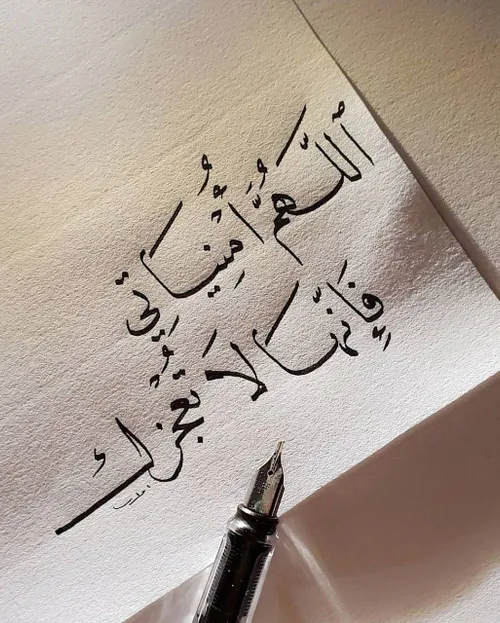 ٱللَّهُمَّ أُمْنِيَاتِي
فَإِنَّهَا لَا تُعْجِزُكَ